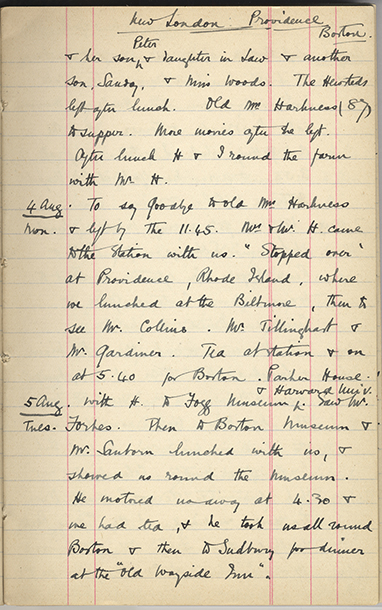 New London Providence
Boston.
Peter
& her son, & daughter in law & another
son, Sandy, & Miss Woods. The
left after lunch. Old Mr Harkness (87)
to supper. More movies after he left.
After lunch H & I round the farm
with Mr H.
4 Aug. To say Goodbye to old Mrs Harkness
Mon. & left by the 11.45. Mrs & Mr. H. came
to the station with us. "Stopped over"
at Providence, Rhode Island, where
we lunched at the Biltmore, then to
see Mr. Collins. Mr. Tillinghast &
Mr. Gardiner. Tea at station & on
at 5.40 for Boston. Parker House.
& Harvard Univ.
5 Aug. with H. to Fogg Museum. Saw Mr.
Tues. Forbes. Then to Boston Museum &
Mr. Sanborn lunched with us, &
showed us round the museum.
He motored us away at 4.30 &
we had tea, & he took us all round
Boston & then to Sudbury for dinner
at the "Old Wayside Inn".